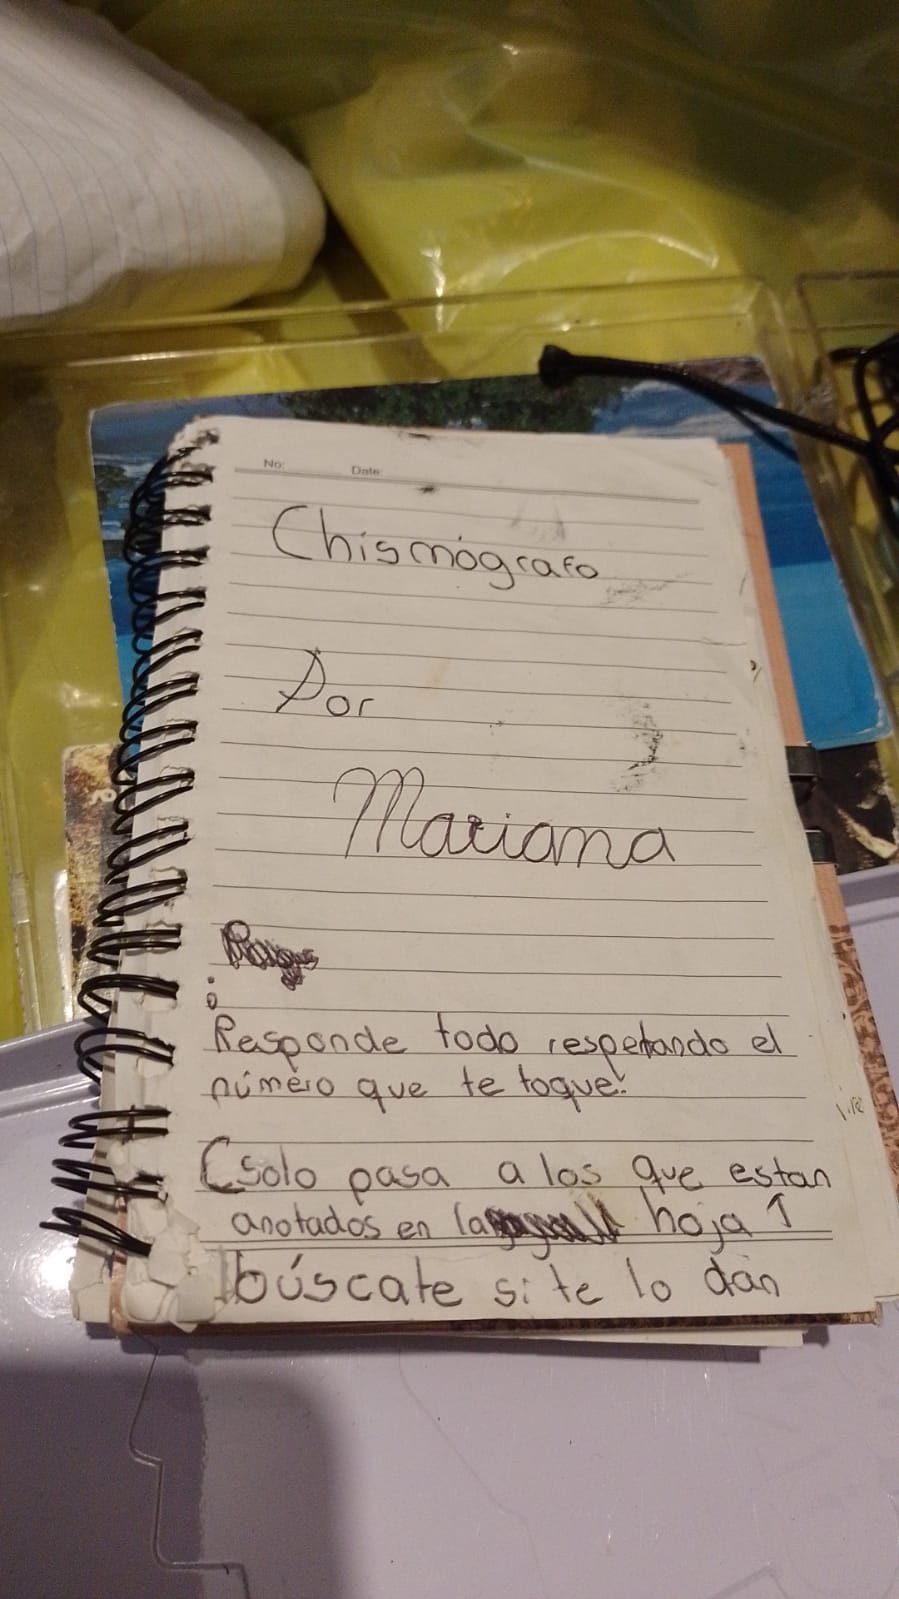 No: Date:
Chismógrafo
Por
Mariana
Responde todo respetando el
número que te toque.
(solo pasa a los que estan
anotados en la hoja ↑
búscate si te lo dan